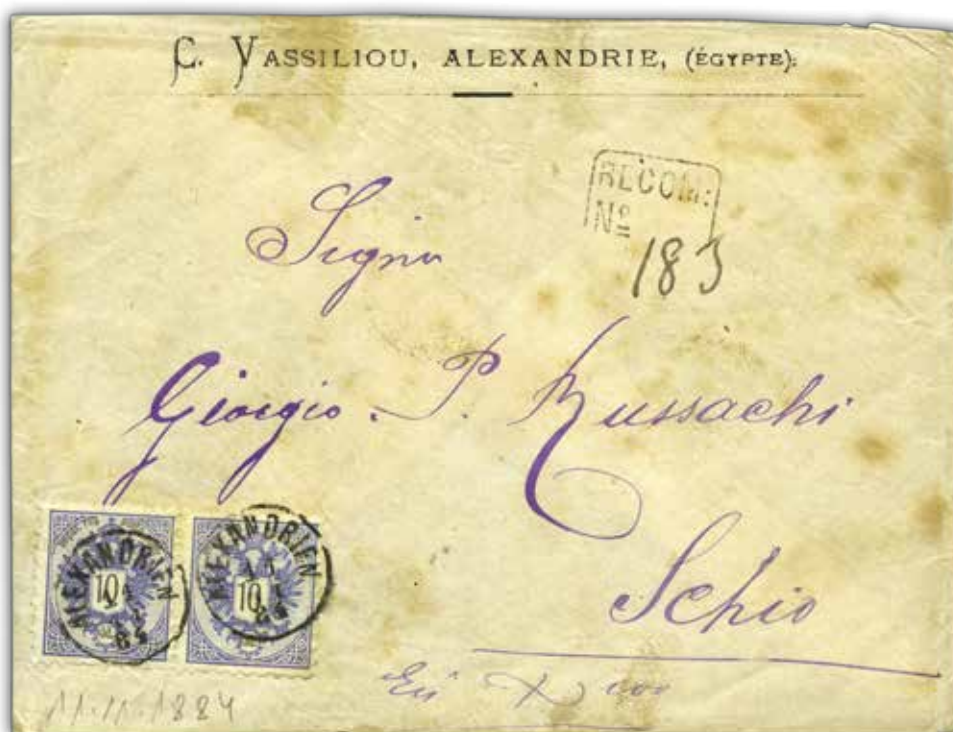 C. VASSILIOU, ALEXANDRIE, (ÉGYPTE).
RECOM:
Nº
183
Signor
Giorgio. P. Mussachi
Schio
ALEXANDRIEN
10
ALEXANDRIEN
10
11.11.1884